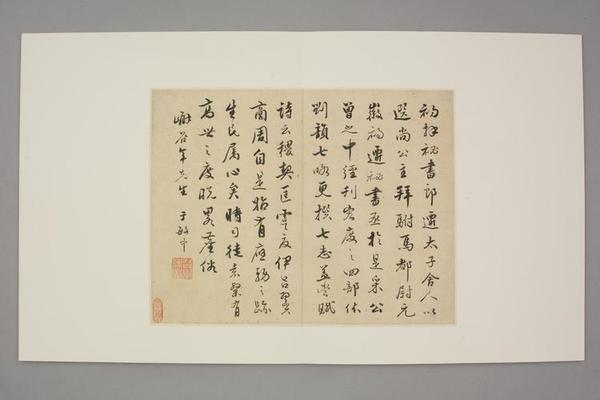 初拜秘書郎遷太子舍人以
選尚公主拜駙馬都尉元
徽初遷秘書丞於是采公
曾之中經刊宏度之四部依
劉歆七略更撰七志蓋嘗賦
詩云稷契匡虞夏伊呂翼
商周自是始有應務之跡
生民屬心矣時司徒袁粲有
高世之度脫塵俗
嶰谷年先生 于敏中